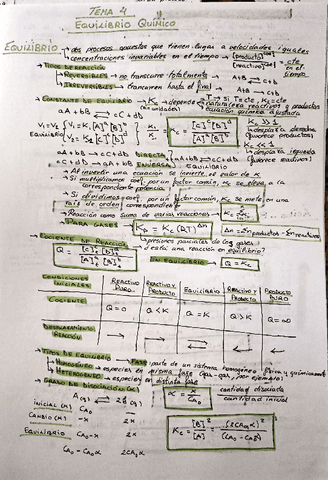 TEMA 4
EQUILIBRIO QUÍMICO
EQUILIBRIO → dos procesos opuestos que tienen lugar a velocidades iguales
concentraciones invariables en el tiempo → [producto]/[reactivo] = cte en el tiempo
→ TIPOS DE REACCIÓN
→ REVERSIBLES → no transcurre totalmente A+B ⇌ C+D
→ IRREVERSIBLES → transcurren hasta el final A+B → C+D
→ CONSTANTE DE EQUILIBRIO → Kc → depende
aA + bB ⇌ cC + dD
Kc = [C]^c [D]^d / [A]^a [B]^b
EQUILIBRIO
Kc >> 1
Kc << 1
aA + bB ⇌ cC + dD DIRECTA
INVERSA
→ Al invertir una ecuación se invierte el valor de K
→ Si multiplicamos coef. por un factor común, Kc se eleva a la
correspondiente potencia
→ Si dividimos coef. por un factor común, Kc se mete en una
raíz de orden correspondiente
→ Reacción como suma de varias reacciones →
→ PARA GASES Kp = Kc (RT)^Δn Δn = Σn productos - Σn reactivos
→ presiones parciales de los gases
→ COCIENTE DE REACCIÓN
Q = [C]^c [D]^d / [A]^a [B]^b
EN EQUILIBRIO Q = Kc
CONDICIONES INICIALES REACTIVO PURO REACTIVO Y PRODUCTO EQUILIBRIO REACTIVO Y PRODUCTO PRODUCTO PURO
COCIENTE Q = 0 Q < K Q = K Q > K Q = ∞
DESPLAZAMIENTO REACCIÓN → → ⇌ ← ←
→ TIPOS DE EQUILIBRIO → FASE (parte de un sistema homogéneo física y químicamente
→ HOMOGÉNEO → especies en misma fase (gas-gas, por ejemplo)
→ HETEROGÉNEO → especies en distinta fase
→ GRADO DE DISOCIACIÓN (α)
cantidad disociada
cantidad inicial
A(g) ⇌ 2B(g)
INICIAL (M) CA0 —
CAMBIO (M) -x 2x
EQUILIBRIO CA0-x 2x
CA0 - CA0α 2CA0α
Kc = [B]²/[A] = (2CA0α)²/(CA0 - CA0α)